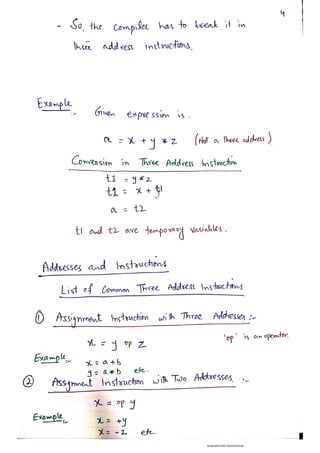 4
- So, the Compiler has to break it in
three address instructions.
Example :-
Given expression is.
a = x + y * z (Not a Three address)
Conversion in Three Address Instruction
t1 = y * z
t2 = x + t1
a = t2
t1 and t2 are temporary variables.
Addresses and Instructions
List of Common Three Address Instructions
① Assignment Instruction with Three Addresses :-
x = y op z 'op' is an operator.
Example :- x = a + b
y = a * b etc.
② Assignment Instruction with Two Addresses :-
x = op y
Example :- x = +y
x = -z etc
Scanned with CamScanner